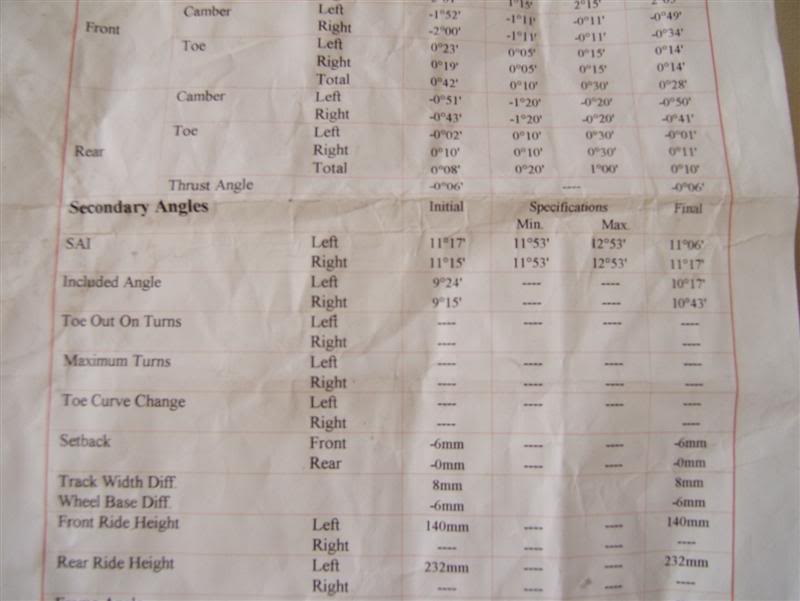 1°15' 2°15'
Front Camber Left -1°52' -1°11' -0°11' -0°49'
Right -2°00' -1°11' -0°11' -0°34'
Toe Left 0°23' 0°05' 0°15' 0°14'
Right 0°19' 0°05' 0°15' 0°14'
Total 0°42' 0°10' 0°30' 0°28'
Rear Camber Left -0°51' -1°20' -0°20' -0°50'
Right -0°43' -1°20' -0°20' -0°41'
Toe Left -0°02' 0°10' 0°30' -0°01'
Right 0°10' 0°10' 0°30' 0°11'
Total 0°08' 0°20' 1°00' 0°10'
Thrust Angle -0°06' ---- -0°06'
Secondary Angles Initial Specifications Final
Min. Max.
SAI Left 11°17' 11°53' 12°53' 11°06'
Right 11°15' 11°53' 12°53' 11°17'
Included Angle Left 9°24' ---- ---- 10°17'
Right 9°15' ---- ---- 10°43'
Toe Out On Turns Left ---- ---- ---- ----
Right ---- ----
Maximum Turns Left ---- ---- ---- ----
Right ---- ---- ---- ----
Toe Curve Change Left ---- ---- ---- ----
Right ---- ---- ---- ----
Setback Front -6mm ---- ---- -6mm
Rear -0mm ---- ---- -0mm
Track Width Diff. 8mm 8mm
Wheel Base Diff. -6mm -6mm
Front Ride Height Left 140mm ---- ---- 140mm
Right ---- ---- ---- ----
Rear Ride Height Left 232mm ---- ---- 232mm
Right ---- ---- ---- ----